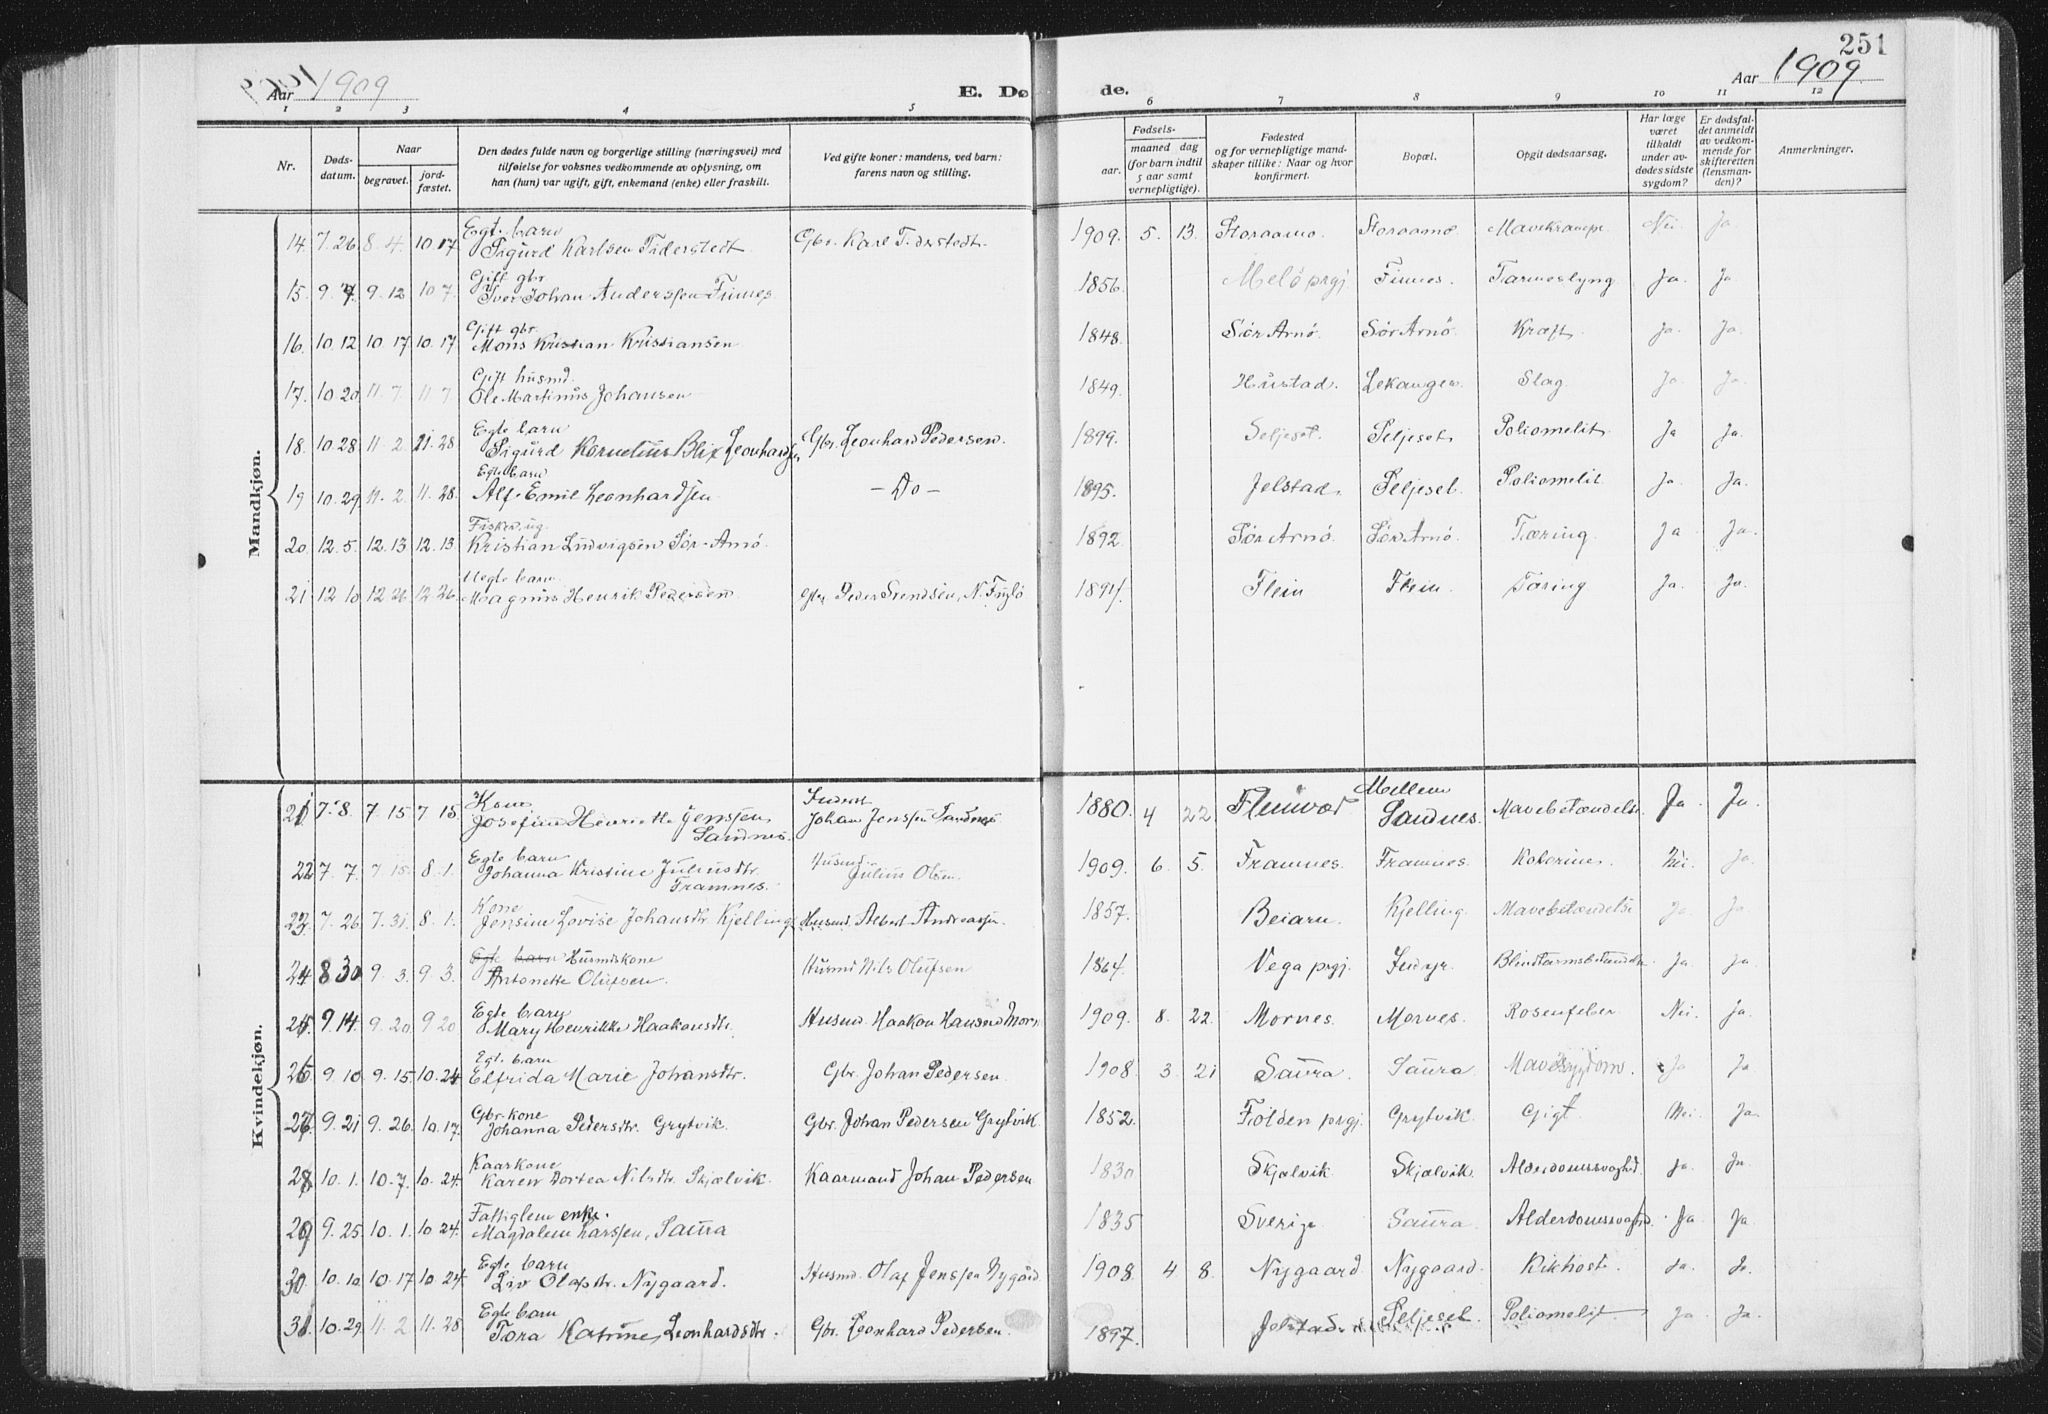 251
Aar 1909
E. Dø de.
Aar 1909
1 2 3 4 5 6 7 8 9 10 11 12
Nr.
Døds-datum.
Naar
begravet.
jord-fæstet.
Den dødes fulde navn og borgerlige stilling (næringsvei) med
tilføielse for voksnes vedkommende av oplysning, om
han (hun) var ugift, gift, enkemand (enke) eller fraskilt.
Ved gifte koner: mandens, ved barn:
farens navn og stilling.
Fødsels-
aar.
maaned dag
(for barn indtil
5 aar samt
vernepligtige).
Fødested
og for vernepligtige mand-
skaper tillike: Naar og hvor
konfirmert.
Bopæl.
Opgit dødsaarsag.
Har læge
været
tilkaldt
under av-
dødes sidste
sygdom?
Er dødsfal-
det anmeldt
av vedkom-
mende for
skifteretten
(lensman-
den)?
Anmerkninger.
Mandkjøn.
Egt. barn
14. 7.26 8.4. 10 17 Sigurd Karlsen Tiderstedt Gbr. Karl Tiderstedt. 1909. 5. 13. Storaamo. Storaamo. Mavekrampe Nei Ja
Gift gbr.
15. 9. 7. 9.12 10 7. Iver Johan Anderssen Finnes 1856. Melö prgj. Finnes. Tarmeslyng Ja. Ja
Gift gbr.
16. 10.12 10 17 10.17 Mons Kristian Kristiansen 1848. Sör Arnö. Sör Arnö. Kræft Ja. Ja.
Gift husmd.
17. 10 20. 11.7. 11 7. Ole Martinus Johansen 1849. Hustad. Lekangen. Slag. Ja. Ja.
Egte barn
18. 10.28 11.2. 11.28 Sigurd Kornelius Blix Leonhardsen Gbr. Leonhard Pedersen. 1899. Seljeset. Seljeset. Poliomelit. Ja Ja.
Egte barn
19 10.29 11.2. 11.28. Alf Emil Leonhardsen — Do — 1895. Jelstad. Seljeset. Poliomelit. Ja. Ja.
Fisker, ug.
20. 12.5. 12.13 12.13 Kristian Ludvigsen Sör-Arnö. 1892. Sör Arnö. Sör Arnö. Tæring. Ja. Ja.
Uegte barn
21 12 10 12 26. 12 26. Magnus Henrik Pedersen Gbr Peder Svendsen, N. Fuglö 1894. Flein Flein. Tæring Ja. Ja.
Kvindekjøn.
Kone Inderst Mellem
21 7.8. 7 15 7 15. Josefine Henriette Jenssen Johan Jenssen Sandnes 1880. 4 22 Fleinvær Sandnes. Mavebetændelse Ja. Ja.
Sandnes.
Egte barn Husmd.
22 7.7. 7.15. 8.1. Johanna Kristine Juliusdtr. Julius Olsen. 1909. 6. 5. Framnes. Framnes. Kolerine. Nei. Ja.
Framnes.
Kone
23. 7.26. 7.31. 8.1. Jensine Lovise Johansdtr Kjelling Husmd. Albert Andreassen. 1857. Beiarn. Kjelling. Mavebetændelse Ja. Ja.
Egte barn Husmdskone
24 8 30 9.3. 9 3. Antonette Olufsen. Husmd Nils Olufsen 1864. Vega prgj. Indyr. Blindtarmsbetændelse. Ja. Ja.
Egte barn
25 9.14. 9.20. 9 20 Mary Henrikke Haakonsdtr. Husmd. Haakon Hansen Morn 1909. 8. 22. Mornes. Mornes. Rosenfeber. Nei. Ja.
Egt. barn
26 9.10 9.15 10.24 Elfrida Marie Johansdtr. Gbr. Johan Pedersen. 1908. 3. 21 Saura. Saura. Mavesygdom. Ja Ja
Gbr. kone
27. 9.21 9.26. 10.17. Johanna Pedersdtr. Grytvik. Gbr. Johan Pedersen Grytvik. 1852. Folden prgj. Grytvik. Gigt. Nei. Ja.
Kaarkone
28 10.1. 10.7. 10.24. Karen Dortea Nilsdtr. Skjælvik. Kaarmand Johan Pedersen 1830 Skjælvik Skjælvik. Alderdomssvaghed Ja. Ja.
Fattiglem enke.
29 9.25. 10.1. 10 24. Magdalena Larssen, Saura 1835 Sverige Saura. Alderdomssvaghed. Ja. Ja
Egte barn
30 10.10 10.17 10 24. Liv Olafsdtr. Nygaard. Husmd. Olaf Jenssen Nygård 1908. 4 8. Nygaard. Nygaard. Kikhoste. Ja. Ja.
Egte barn
31 10.29 11.2. 11.28 Tora Katrine Leonhardsdtr. Gbr. Leonhard Pedersen. 1897. Jelstad. Seljeset. Poliomelit Ja. Ja.